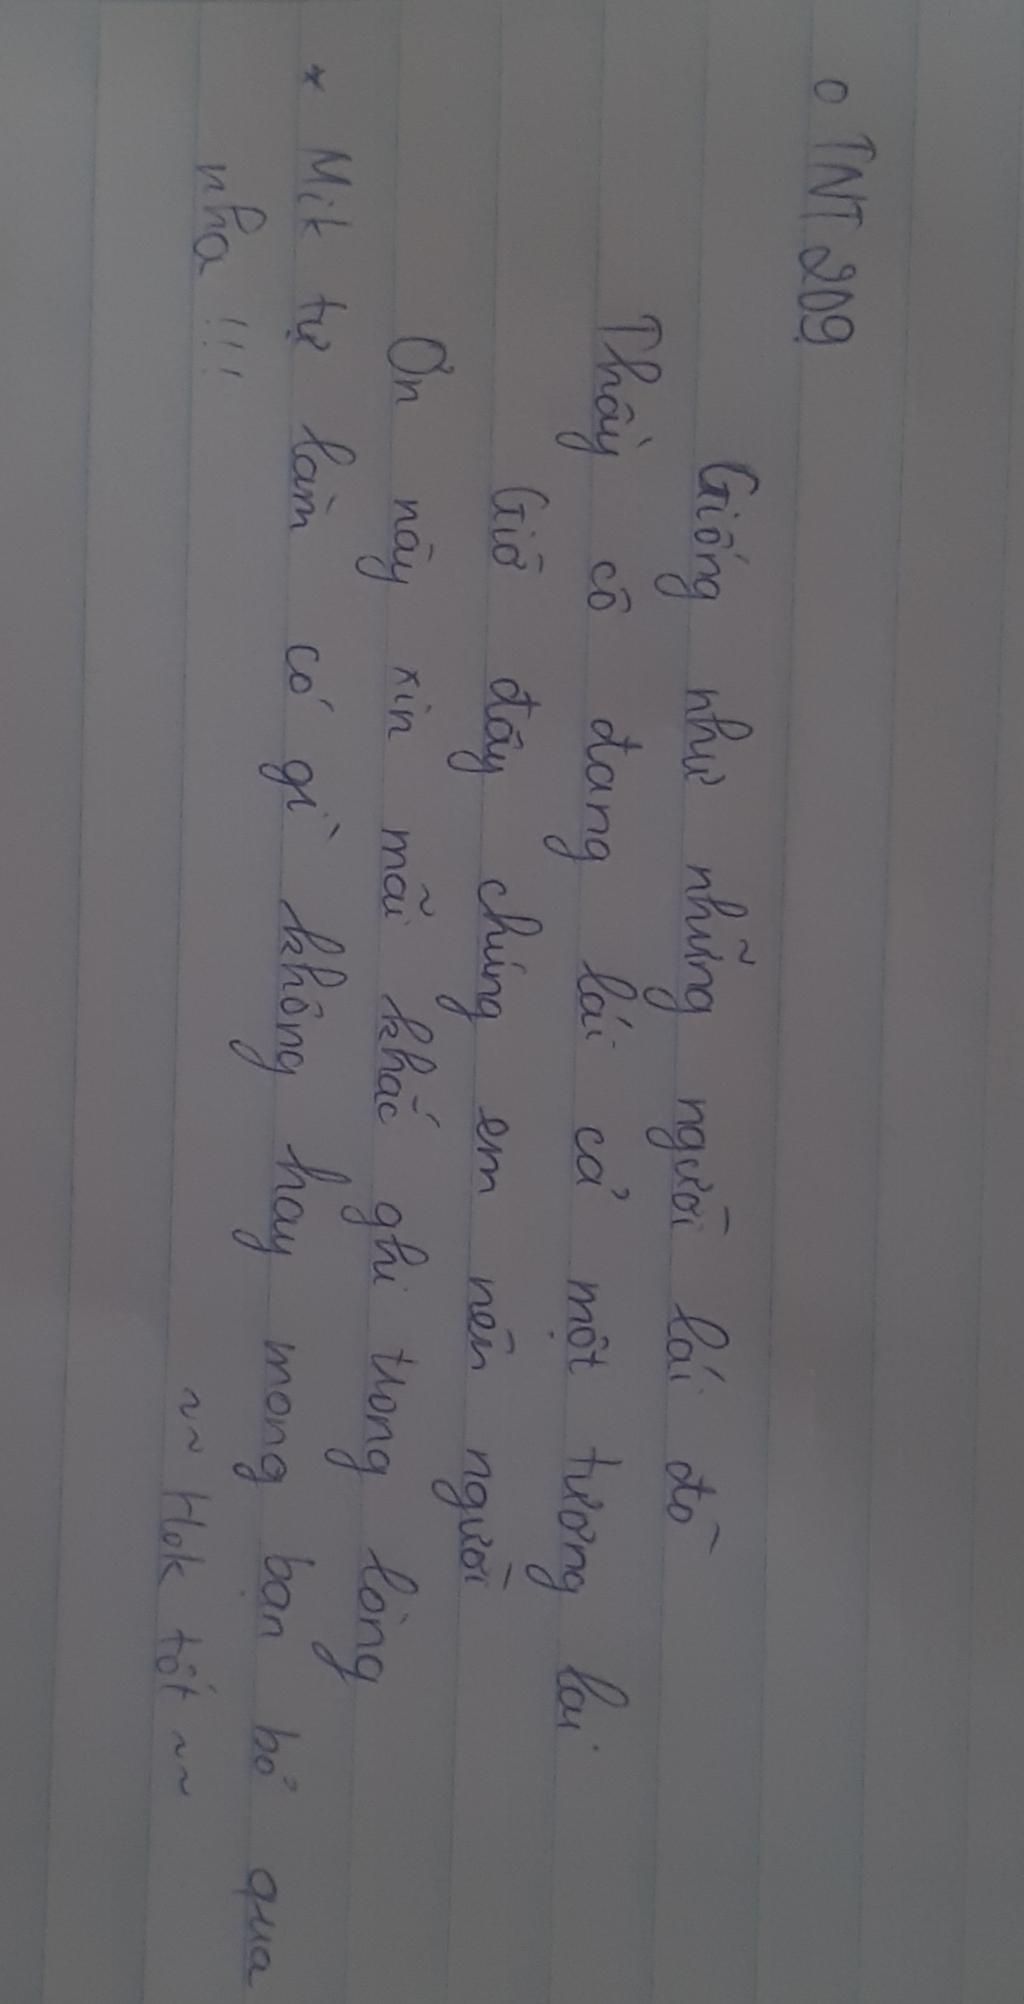 o TNT 209
Giống như những người lái đò
Thầy cô đang lái cả một tương lai
Giờ đây chúng em nên người
Ơn này xin mãi khắc ghi trong lòng
* Mik tự làm có gì không hay mong bạn bỏ qua
nha !!!
~~ Hok tốt ~~